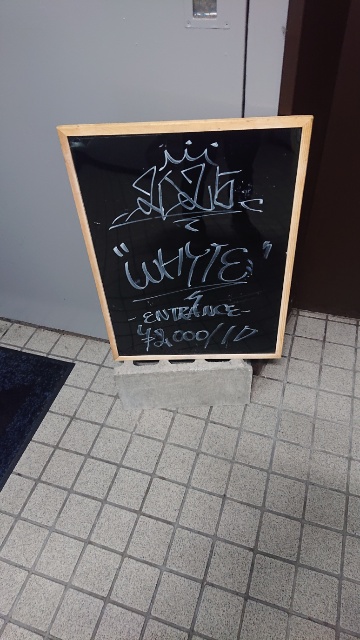 "WHYTE"
-ENTRANCE-
¥2,000/1D